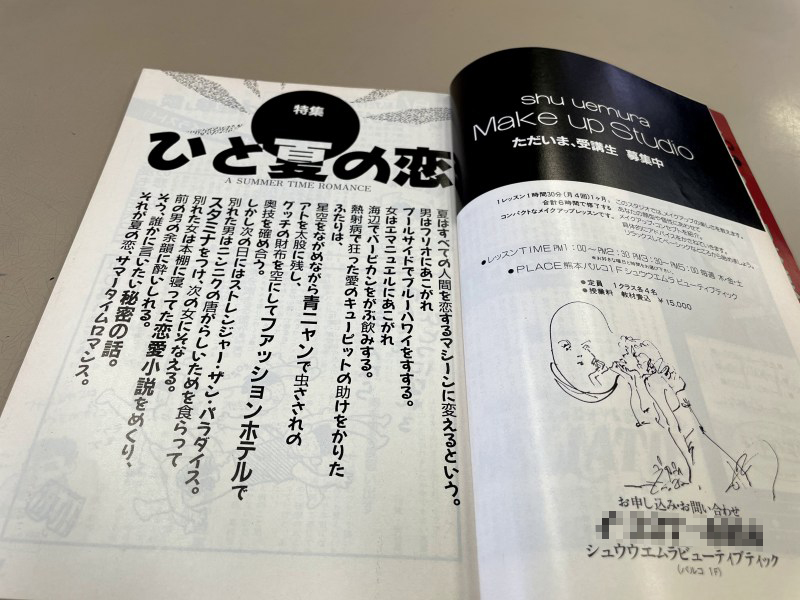 特集
ひと夏の恋
A SUMMER TIME ROMANCE
夏はすべての人間を恋するマシーンに変えるという。
男はフリオにあこがれ
プールサイドでブルーハワイをすする。
女はエマニュエルにあこがれ
海辺でバービカンをがぶ飲みする。
熱射病で狂った愛のキューピットの助けをかりた
ふたりは、
星空をながめながら青ニャンで虫さされの
アトを太股に残し、
グッチの財布を空にしてファッションホテルで
奥技を確め合う。
しかし次の日にはストレンジャー・ザン・パラダイス。
別れた男はニンニクの唐がらしいためを食らって
スタミナをつけ、次の女にそなえる。
別れた女は本棚に寝ってた恋愛小説をめくり、
前の男の余韻に酔いしれる。
そう、誰かに言いたい秘密の話。
それが夏の恋、サマータイムロマンス。
shu uemura
Make up Studio
ただいま、受講生 募集中
1レッスン1時間30分(月4回)1ヶ月、
合計6時間で修了する
コンパクトなメイクアップレッスンです。
このスタジオでは、メイクアップの楽しさを教えます。
あなたの顔型や個性にあわせて
メイクアップ・コンセプトを紹介。
具体的にアドバイスをかさねていきます。
リラックスムードでここちから始めましょう。
●レッスンTIME PM1:00〜PM2:30 PM3:30〜PM5:00 毎週 木・金・土
※お好きな曜日と時間をお選び下さい。
●PLACE 熊本パルコ1F シュウウエムラ ビューティブティック
●定員 1クラス各4名
●授業料 教材費込 ¥15,000
お申し込み・お問い合わせ
シュウウエムラビューティブティック
(パルコ 1F)